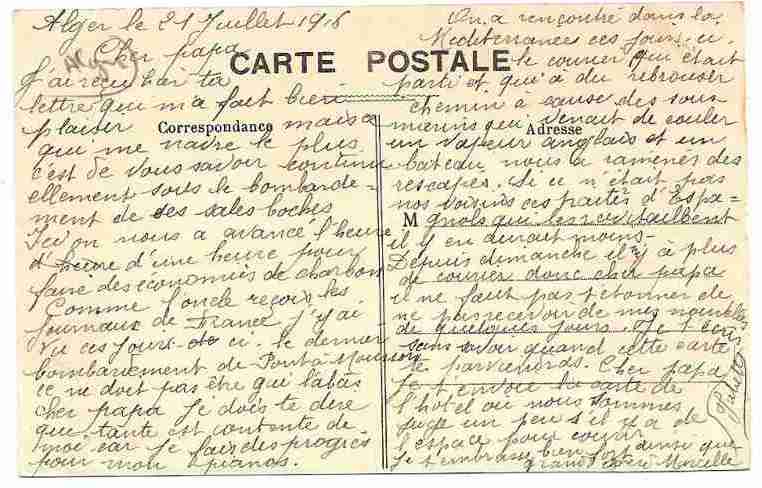 Alger le 21 Juillet 1916
Cher papa
J'ai reçu hier ta
lettre qui m'a fait bien
plaisir mais ce
qui me navre le plus
c'est de vous savoir continu
ellement sous le bombarde=
ment de ses sales boches
Ici on nous a avancé l'heure
d'heure d'une heure pour
faire des économies de charbon
Comme l'oncle reçois les
journaux de France j'y ai
vu ces jours-ci le dernier
bombardement de Pont-à-Mousson
ce ne doit pas être gai là bas
cher papa Je dois te dire
que tante est contente de
moi car je fais des progrès
pour mon piano.
CARTE POSTALE
Correspondance
Adresse
M
On a rencontré dans la
Méditerrannée ces jours-ci
le courier qui était
parti et qu'à du rebrouser
chemin à cause des sous-
marins qui venait de couler
un vapeur anglais et un
bateau nous a ramener des
rescapés. Si ce n'était pas
nos voisins ces traitres d'Espa=
gnols qui les ravitaillent
il y en aurait moins-
Depuis dimanche il n'y à plus
de courier donc cher papa
il ne faut pas t'étonner de
ne pas recevoir de mes nouvelles
de quelques jours. Je t'écris
sans savoir quand cette carte
te parviendra. Cher papa
Je t'envoie la carte de
l'hôtel où nous sommes
juge un peu s'il y a de
l'espace pour courir
Je t'embrasse bien fort ainsi que
grand mère Marcelle